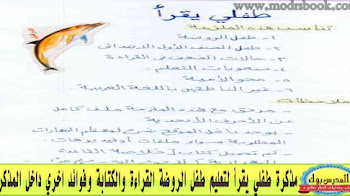 https://www.modrsbook.com
طفلي يقرأ
تناسب هذه الملزمة
١- طفل الروضة
٢- طفل الصف الأول الابتدائي
٣- حالات الضعف في القراءة
٤- صعوبات التعلم
٥- محو الأمية
٦- غير الناطقين باللغة العربية
ملاحظات
مرفق مع هذه الملزمة ملف كامل
عن الأحرف الأبجدية
مذكرة طفلي يقرأ لتعليم طفل الروضة القراءة والكتابة وفوائد اخري داخل المذكر
المدرس بوك